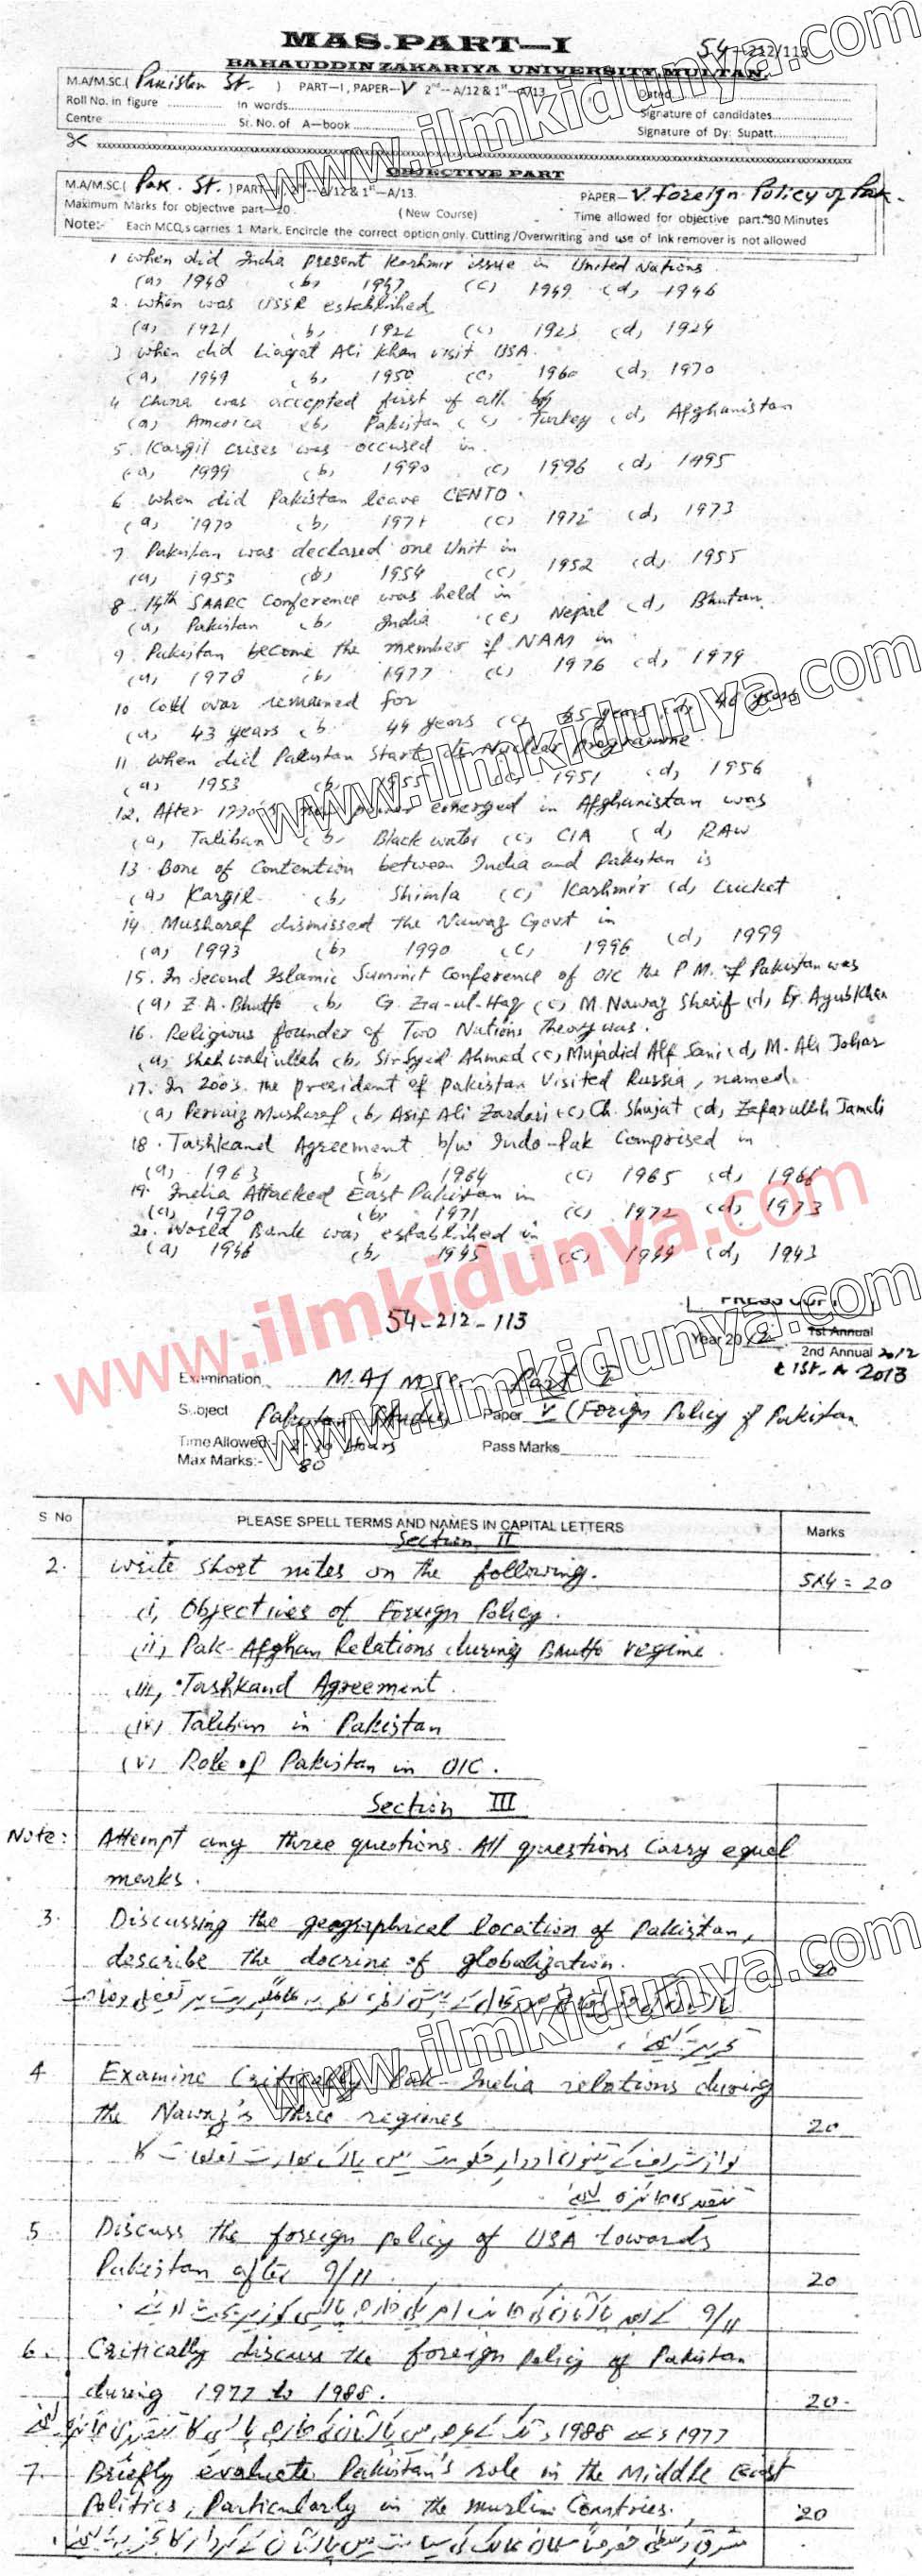 MAS.PART—I
54-212/113
BAHAUDDIN ZAKARIYA UNIVERSITY MULTAN.
M.A/M.SC.( Pakistan St. ) PART—I, PAPER—V 2nd—A/12 & 1st—A/13
Dated
Roll No. in figure in words
Signature of candidates
Centre Sr. No. of A—book
Signature of Dy: Supatt.
OBJECTIVE PART
M.A/M.SC.( Pak. St. ) PART—I, 2nd—A/12 & 1st—A/13.
PAPER—V. Foreign Policy of Pak.
Maximum Marks for objective part—20.
(New Course)
Time allowed for objective part:30 Minutes
Note:- Each MCQ,s carries 1 Mark. Encircle the correct option only. Cutting/Overwriting and use of Ink remover is not allowed
1 when did India present Kashmir issue in United Nations.
(a) 1948 (b) 1947 (c) 1949 (d) 1946
2. when was USSR established
(a) 1921 (b) 1922 (c) 1923 (d) 1924
3 when did Liaqat Ali Khan visit USA.
(a) 1949 (b) 1950 (c) 1960 (d) 1970
4 China was accepted first of all by
(a) America (b) Pakistan (c) Turkey (d) Afghanistan
5. Kargil crises was occused in.
(a) 1999 (b) 1990 (c) 1996 (d) 1995
6 when did Pakistan leave CENTO.
(a) 1970 (b) 1971 (c) 1972 (d) 1973
7 Pakistan was declared one Unit in
(a) 1953 (b) 1954 (c) 1952 (d) 1955
8. 14th SAARC Conference was held in
(a) Pakistan (b) India (c) Nepal (d) Bhutan
9 Pakistan become the member of NAM in
(a) 1978 (b) 1977 (c) 1976 (d) 1979
10 Cold war remained for
(a) 43 years (b) 44 years (c) 45 years (d) 46 years
11 when did Pakistan start its Nuclear programme.
(a) 1953 (b) 1955 (c) 1951 (d) 1956
12. After emerged in Afghanistan was
(a) Taliban (b) Black water (c) CIA (d) RAW
13. Bone of Contention between India and Pakistan is
(a) Kargil (b) Shimla (c) Kashmir (d) Cricket
14. Musharaf dismissed the Nawaz Govt in
(a) 1993 (b) 1990 (c) 1996 (d) 1999
15. In Second Islamic Summit Conference of OIC the P.M. of Pakistan was
(a) Z.A. Bhutto (b) G. Zia-ul-Haq (c) M. Nawaz Sharif (d) G. Ayub Khan
16. Religious founder of Two Nations Theory was.
(a) Shah waliullah (b) Sir Syed Ahmed (c) Mujadid Alf Sani (d) M. Ali Johar
17. In 2003. the president of Pakistan visited Russia, named.
(a) Pervaiz Musharaf (b) Asif Ali Zardari (c) Ch. Shujat (d) Zafarullah Jamali
18. Tashkand Agreement b/w Indo-Pak Comprised in
(a) 1963 (b) 1964 (c) 1965 (d) 1966
19. India Attacked East Pakistan in
(a) 1970 (b) 1971 (c) 1972 (d) 1973
20. World Bank was established in
(a) 1946 (b) 1945 (c) 1944 (d) 1943
www.ilmkidunya.com
PRESS COPY
54-212-113
Year 2012 1st Annual
2nd Annual 2012
& 1st-A 2013
Examination M.A/ M.Sc. Part I
Subject Pakistan Studies Paper V (Forign Policy of Pakistan
Time Allowed:- 2-30 Hours Pass Marks
Max Marks:- 80
S No PLEASE SPELL TERMS AND NAMES IN CAPITAL LETTERS Marks
Section II
2. write short notes on the following. 5x4=20
(i) Objectives of Foreign Policy.
(ii) Pak-Afghan Relations during Bhutto regime.
(iii) Tashkand Agreement.
(iv) Taliban in Pakistan
(v) Role of Pakistan in OIC.
Section III
Note: Attempt any three questions. All questions carry equal
marks.
3. Discussing the geographical location of Pakistan,
describe the docrine of globalization. 20
تحریر کیجئے۔
4 Examine Critically Pak-India relations during
the Nawaz's three regimes 20
نواز شریف کے تینوں ادوار حکومت میں پاک بھارت تعلقات کا
تنقیدی جائزہ لیجئے۔
5 Discuss the foreign policy of USA towards
Pakistan after 9/11. 20
9/11 کے بعد پاکستان کی جانب امریکی خارجہ پالیسی کو زیر بحث لائیے۔
6. Critically discuss the foreign policy of Pakistan
during 1977 to 1988. 20
1977ء سے 1988ء تک کے عرصے میں پاکستان کی خارجہ پالیسی کا تنقیدی جائزہ لیجئے
7. Briefly evaluate Pakistan's role in the Middle East
Politics, Particularly in the muslim Countries. 20
مشرق وسطیٰ خصوصاً مسلمان ممالک کی سیاست میں پاکستان کے کردار کا تجزیہ کیجئے۔